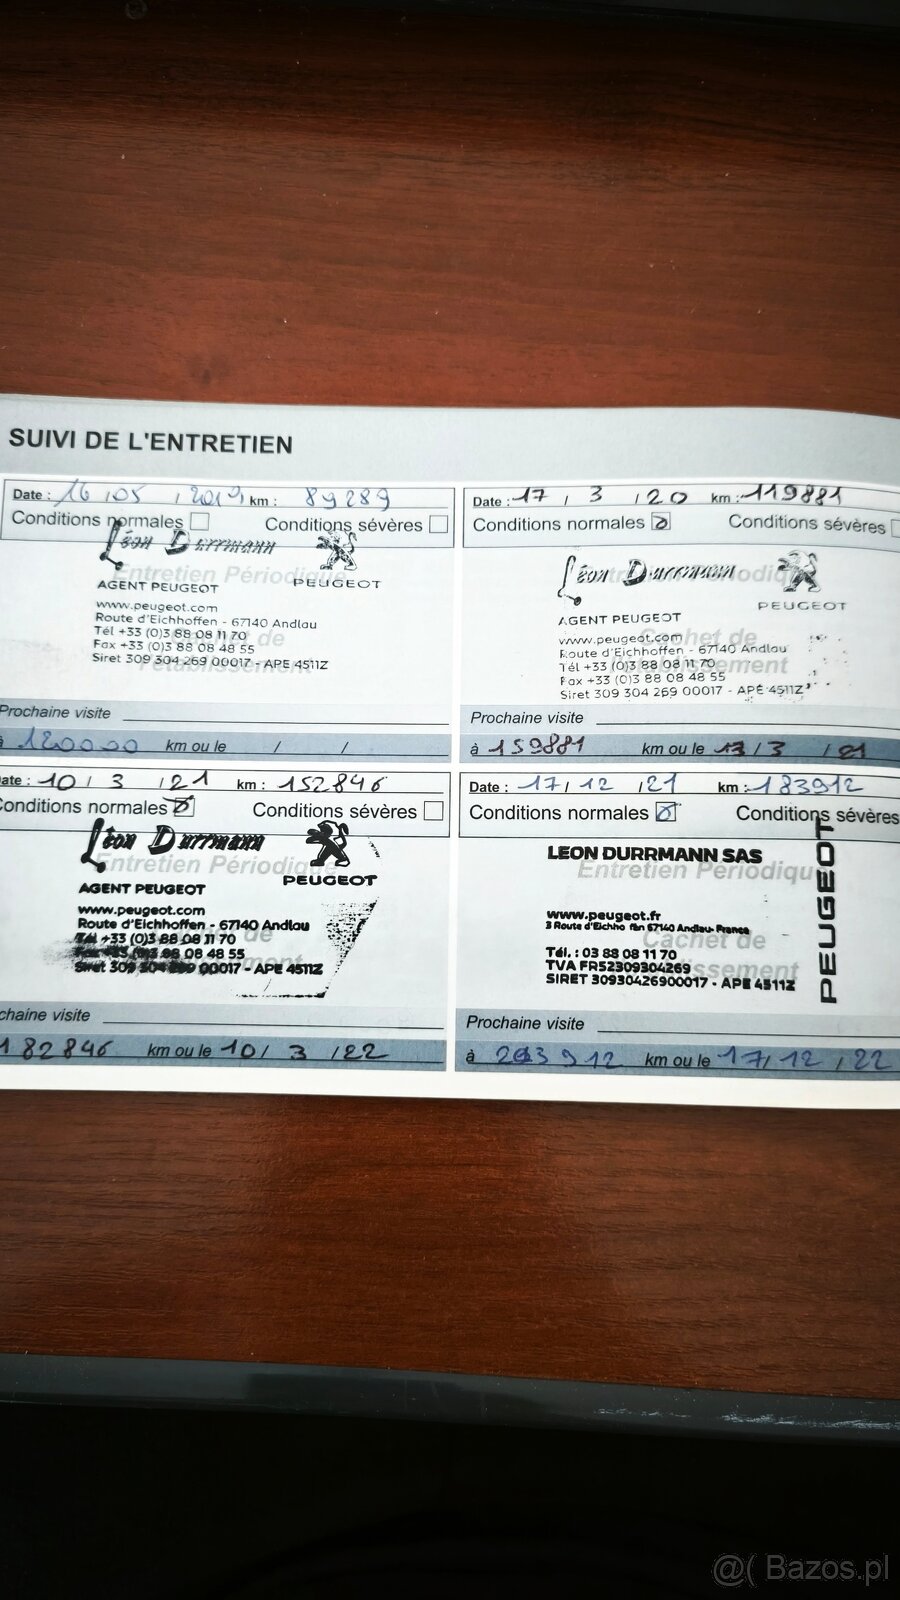 SUIVI DE L'ENTRETIEN
Date : 16 / 05 / 2019 km : 89289
Conditions normales Conditions sévères
Entretien Périodique
Léon Durrmann
AGENT PEUGEOT PEUGEOT
www.peugeot.com
Route d'Eichhoffen - 67140 Andlau
Tél +33 (0)3 88 08 11 70
Fax +33 (0)3 88 08 48 55
Siret 309 304 269 00017 - APE 4511Z
Prochaine visite
à 120000 km ou le / /
Date : 17 / 3 / 20 km : 119881
Conditions normales Conditions sévères
Léon Durrmann
AGENT PEUGEOT PEUGEOT
www.peugeot.com
Cachet de
Route d'Eichhoffen - 67140 Andlau
Tél +33 (0)3 88 08 11 70
Fax +33 (0)3 88 08 48 55
Siret 309 304 269 00017 - APE 4511Z
Prochaine visite
à 159881 km ou le 13/3 / 21
ate : 10 / 3 / 21 km : 152846
Conditions normales Conditions sévères
Léon Durrmann
Entretien Périodique
AGENT PEUGEOT PEUGEOT
www.peugeot.com
Route d'Eichhoffen - 67140 Andlau
Tél +33 (0)3 88 08 11 70
Fax +33 (0)3 88 08 48 55
Siret 309 304 269 00017 - APE 4511Z
chaine visite
182846 km ou le 10/ 3 / 22
Date : 17/ 12 / 21 km : 183912
Conditions normales Conditions sévères
LEON DURRMANN SAS
Entretien Périodique
PEUGEOT
www.peugeot.fr
67140 Andlau- France
Cachet de
Tél. : 03 88 08 11 70
TVA FR52309304269
SIRET 30930426900017 - APE 4511Z
Prochaine visite
km ou le 17/ 12 / 22
@( Bazos.pl